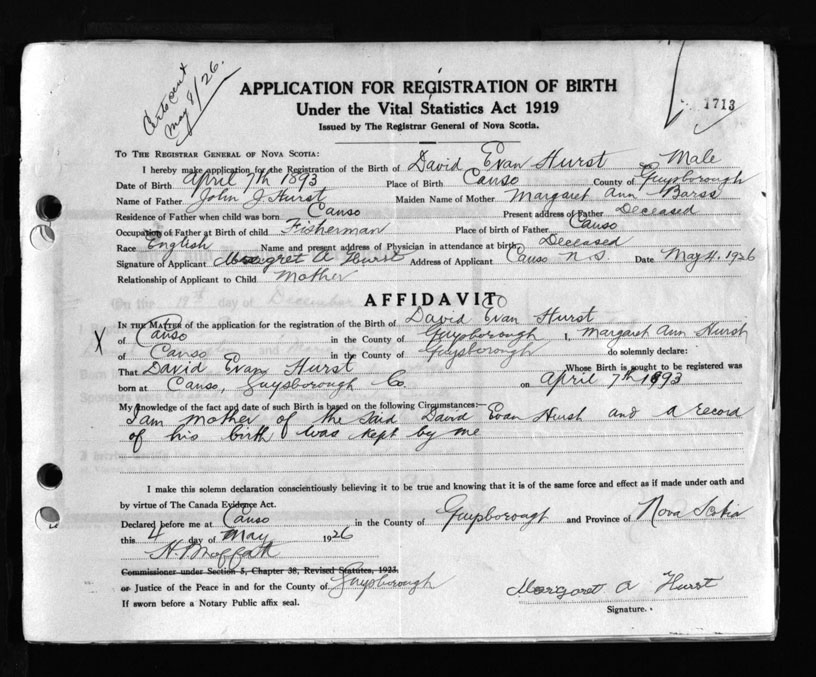 Cert sent
May 8/26.
APPLICATION FOR REGISTRATION OF BIRTH
Under the Vital Statistics Act 1919
Issued by The Registrar General of Nova Scotia.
1713
TO THE REGISTRAR GENERAL OF NOVA SCOTIA:
I hereby make application for the Registration of the Birth of David Evan Hurst Male
Date of Birth April 7th 1893 Place of Birth Canso County of Guysborough
Name of Father John J Hurst Maiden Name of Mother Margaret Ann Barss
Residence of Father when child was born Canso Present address of Father Deceased
Occupation of Father at Birth of child Fisherman Place of birth of Father Canso
Race English Name and present address of Physician in attendance at birth Deceased
Signature of Applicant Margret A Hurst Address of Applicant Canso N.S. Date May 4, 1926
Relationship of Applicant to Child Mother
AFFIDAVIT
IN THE MATTER of the application for the registration of the Birth of David Evan Hurst
X of Canso in the County of Guysborough I, Margaret Ann Hurst
of Canso in the County of Guysborough do solemnly declare:
That David Evan Hurst Whose Birth is sought to be registered was
born at Canso, Guysborough Co. on April 7th 1893
My knowledge of the fact and date of such Birth is based on the following Circumstances:—
I am mother of the said David Evan Hurst and a record
of his birth was kept by me
I make this solemn declaration conscientiously believing it to be true and knowing that it is of the same force and effect as if made under oath and
by virtue of The Canada Evidence Act.
Declared before me at Canso in the County of Guysborough and Province of Nova Scotia
this 4 day of May 1926
Moffatt
Commissioner under Section 5, Chapter 38, Revised Statutes, 1923.
or Justice of the Peace in and for the County of Guysborough
If sworn before a Notary Public affix seal.
Margaret A Hurst
Signature.